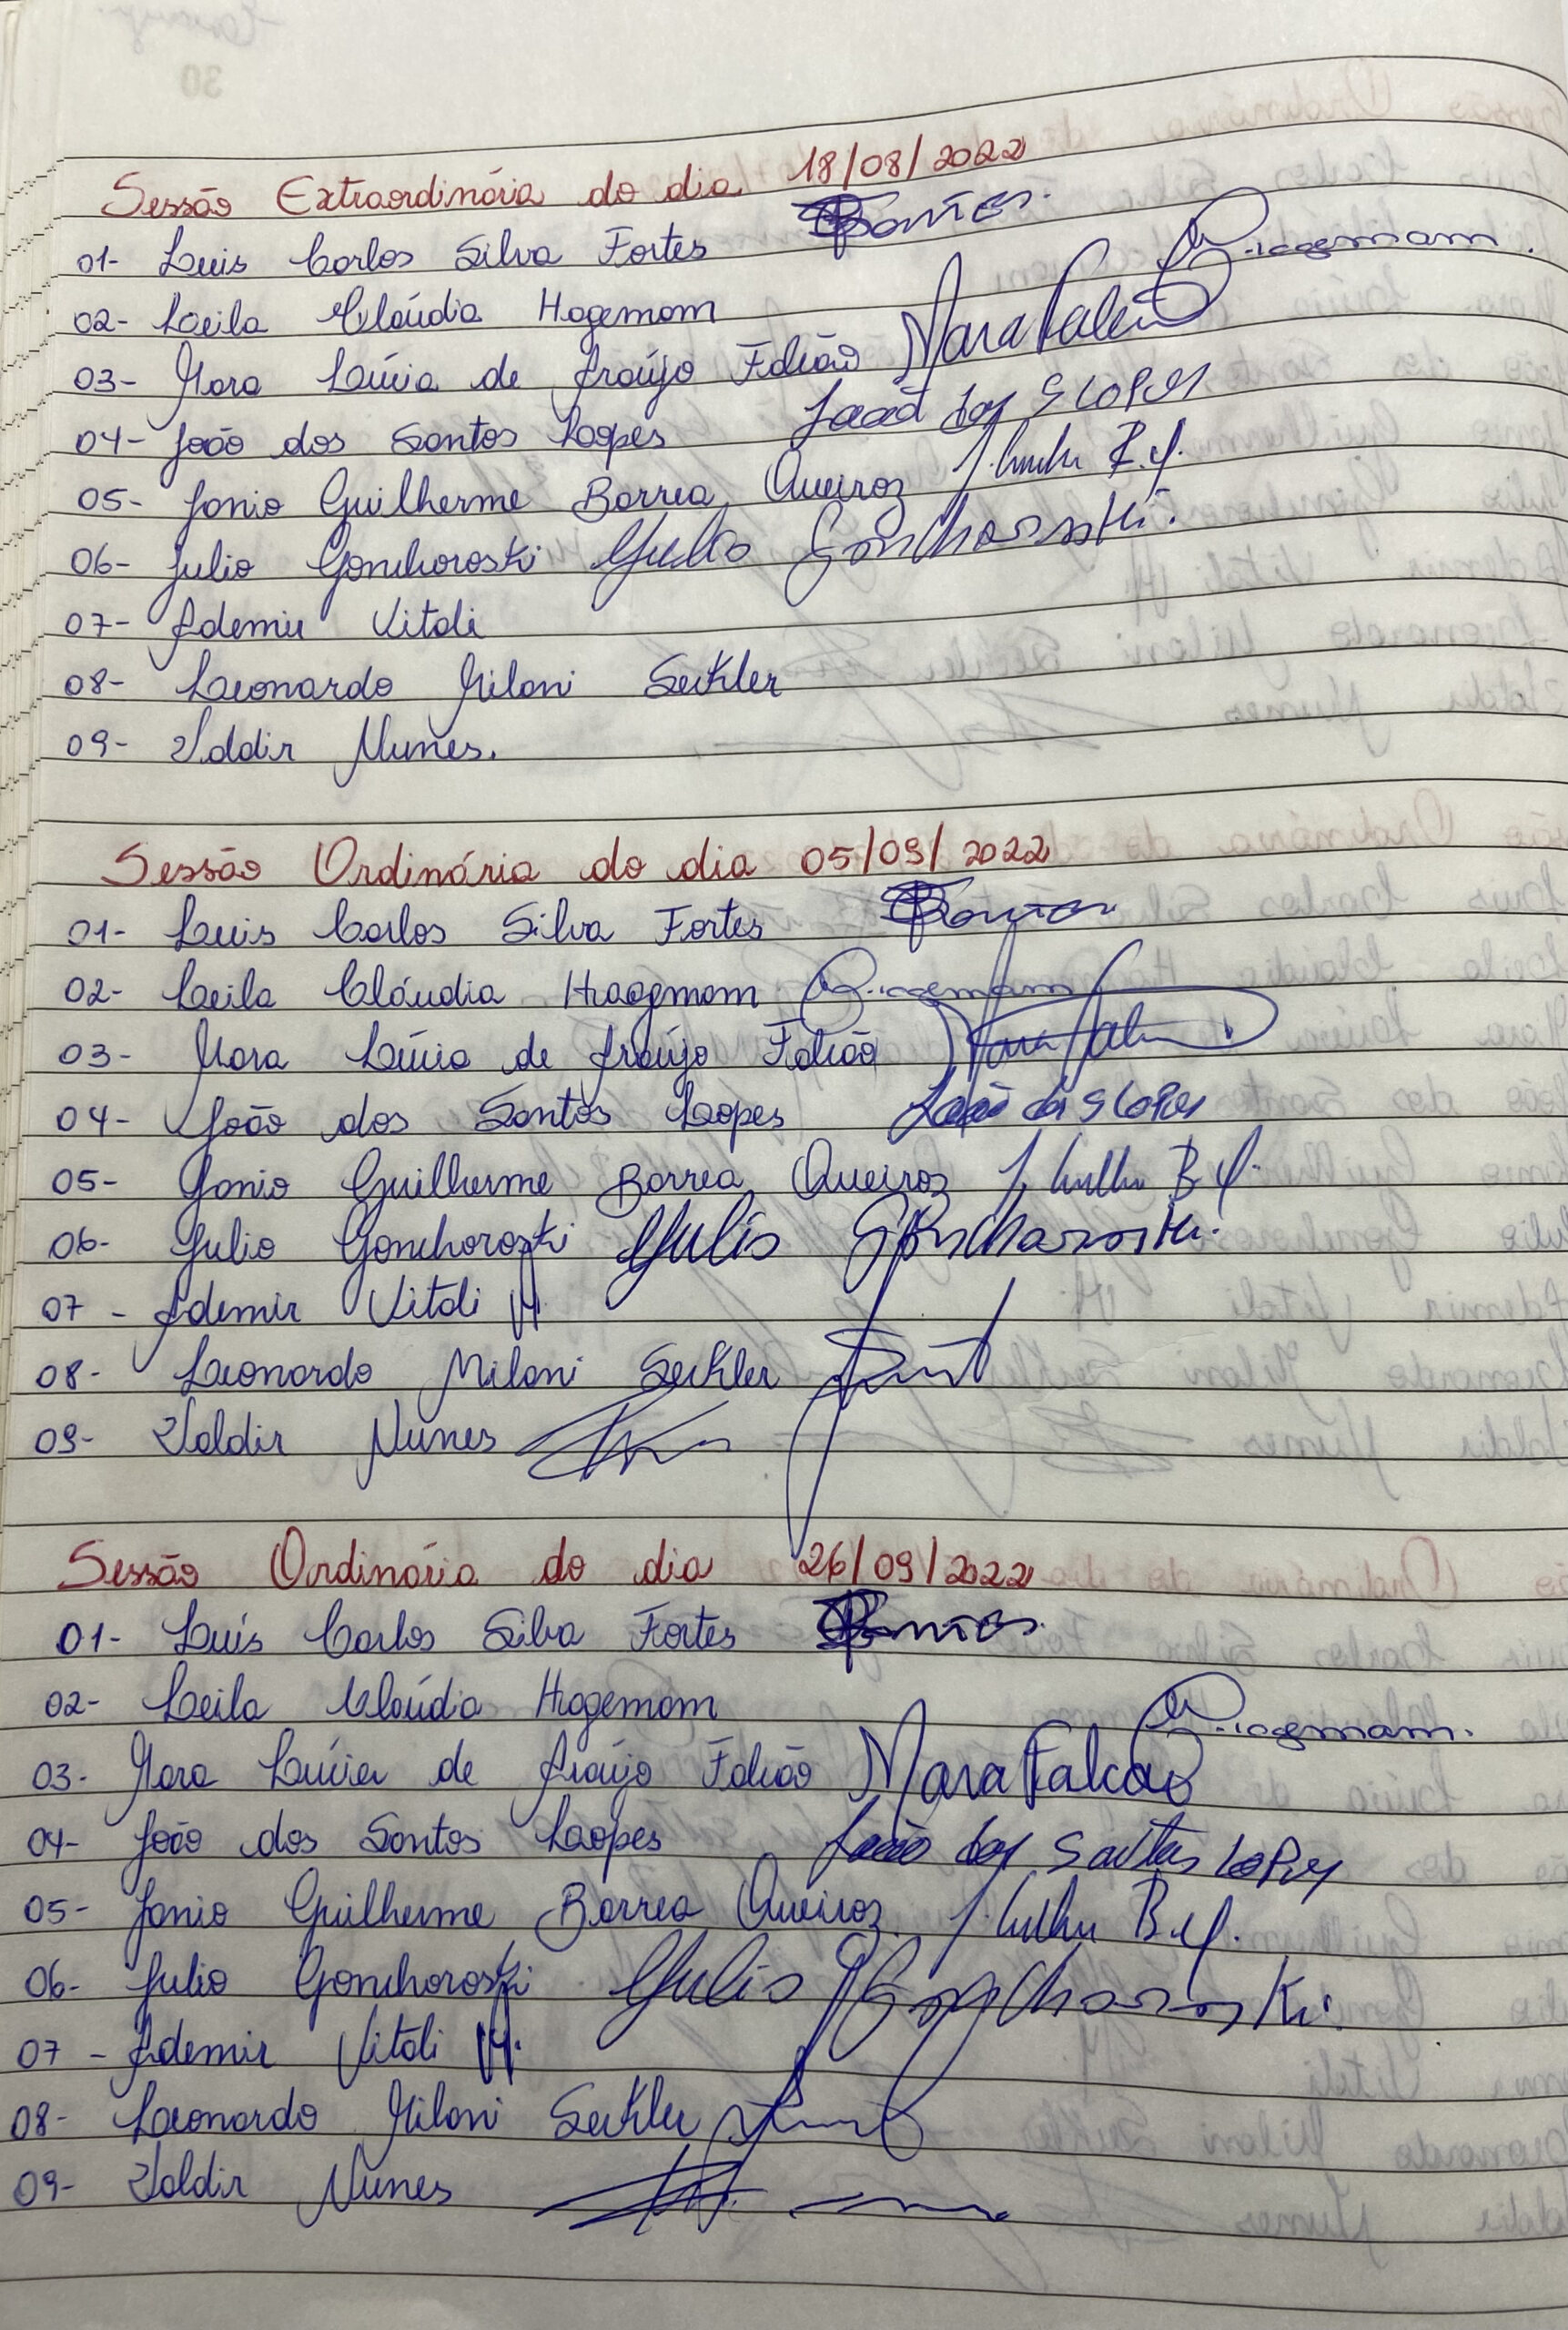 Sessão Extraordinária do dia 18/08/2022
01- Luis Carlos Silva Fortes Fortes.
02- Leila Cláudia Hagemam Hagemam.
03- Mara Lúcia de Araújo Falcão Mara Falcão
04- João dos Santos Lopes João dos S Lopes
05- Jonio Guilherme Correa Queiroz
06- Julio Gonchoroski Julio Gonchoroski.
07- Ademir Vitali
08- Leonardo Miloni Seckler
09- Valdir Nunes.
Sessão Ordinária do dia 05/09/2022
01- Luis Carlos Silva Fortes Fortes
02- Leila Cláudia Hagemam Hagemam
03- Mara Lúcia de Araújo Falcão
04- João dos Santos Lopes João dos S Lopes
05- Jonio Guilherme Correa Queiroz
06- Julio Gonchoroski Julio Gonchoroski.
07- Ademir Vitali
08- Leonardo Miloni Seckler
09- Valdir Nunes
Sessão Ordinária do dia 26/09/2022
01- Luís Carlos Silva Fortes Fortes
02- Leila Cláudia Hagemam Hagemam.
03- Mara Lúcia de Araújo Falcão Mara Falcão
04- João dos Santos Lopes João dos Santos Lopes
05- Jonio Guilherme Correa Queiroz
06- Julio Gonchoroski Julio Gonchoroski.
07- Ademir Vitali
08- Leonardo Miloni Seckler
09- Valdir Nunes